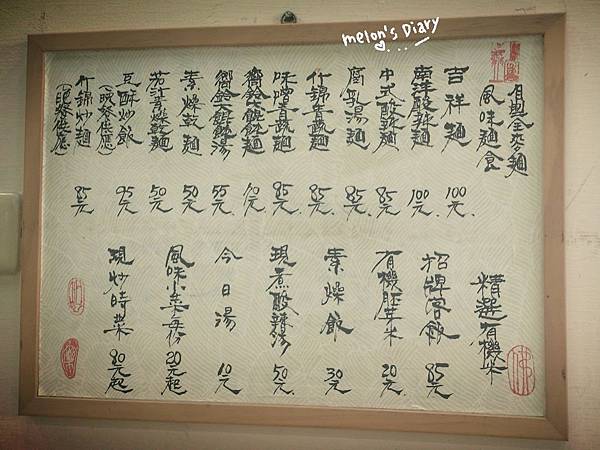 melon's Diary
自與全麥麵
風味麵食
吉祥麵 100元
南洋酸辣麵 100元
中式酸辣麵 85元
腐乳湯麵 85元
什錦青蔬麵 85元
味噌青蔬麵 85元
嚮鈴餛飩麵 70元
嚮鈴餛飩湯 55元
素燥乾麵 50元
茄汁素燥乾麵 50元
豆酥炒飯 95元
(晚餐供應)
什錦炒麵 85元
(晚餐供應)
精選有機米
招牌客飯 85元
有機胚芽米 20元
素燥飯 30元
現煮酸辣湯 50元
今日湯 10元
風味小菜每份 20元起
現炒時菜 80元起